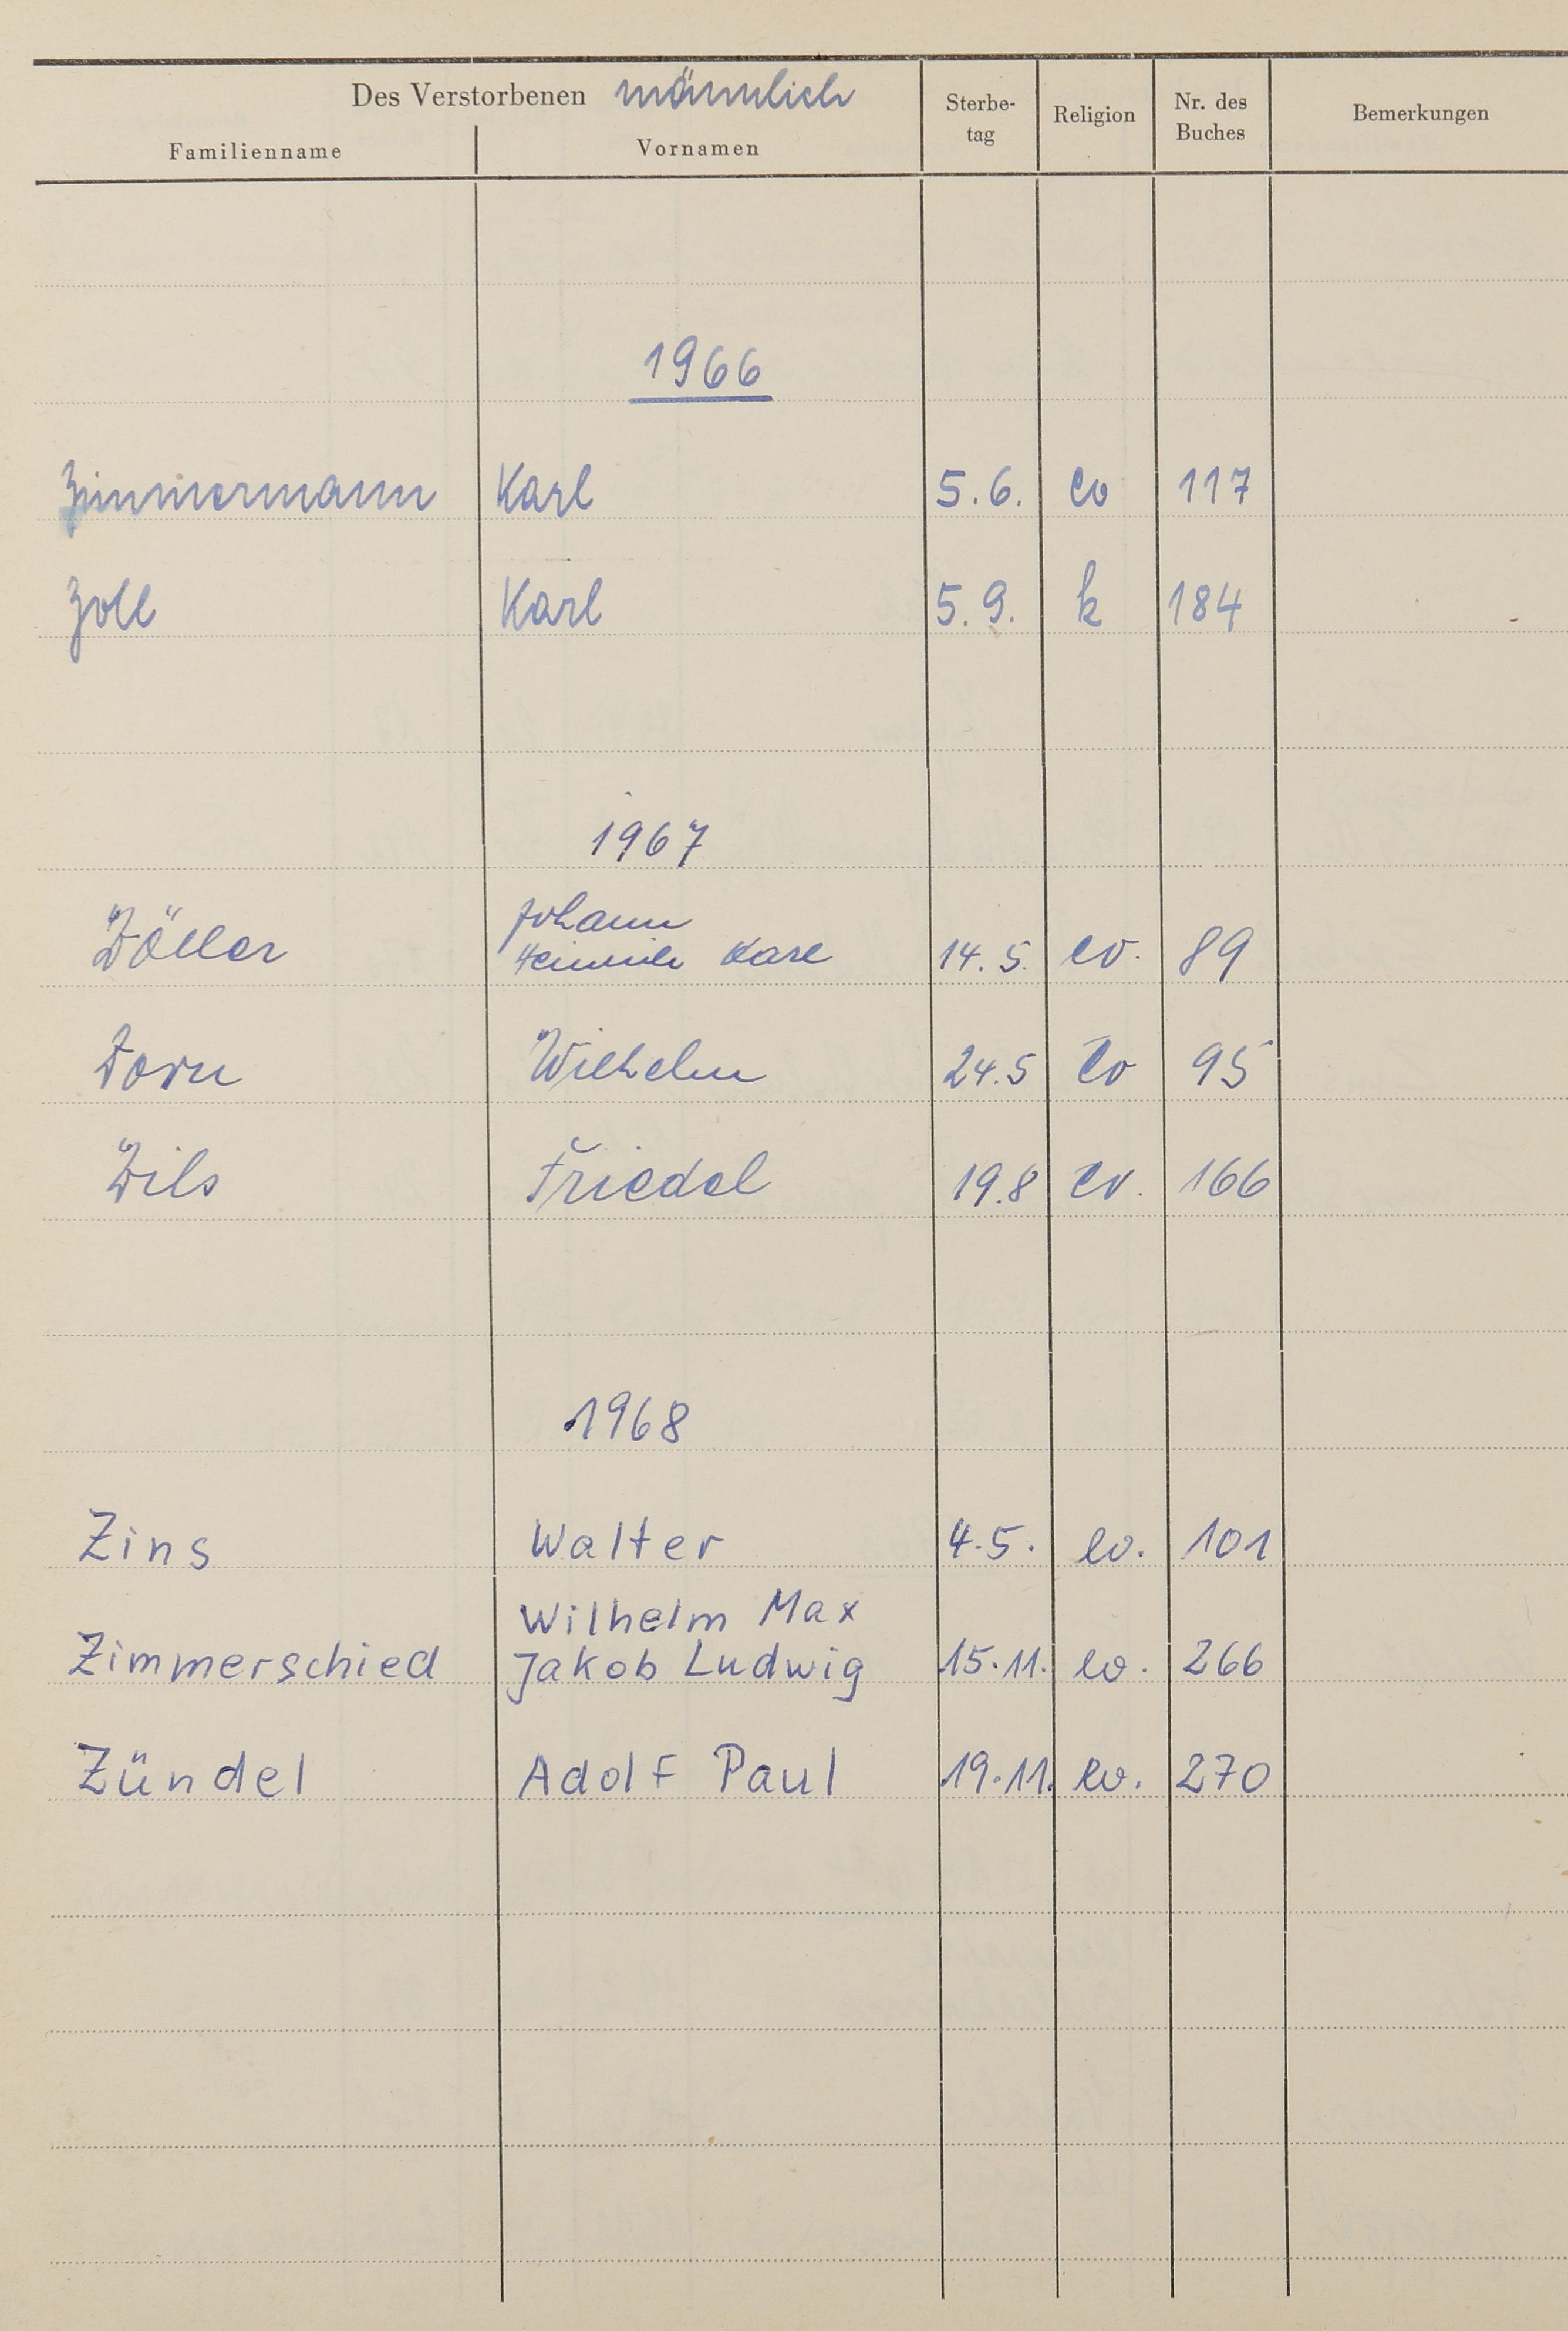 Des Verstorbenen männlich
Familienname Vornamen Sterbe-
tag Religion Nr. des
Buches Bemerkungen
1966
Zimmermann Karl 5.6. ev 117
Zoll Karl 5.9. k 184
1967
Johann
Zöller Heinrich Karl 14.5. ev. 89
Zorn Wilhelm 24.5 ev 95
Zils Friedel 19.8 ev. 166
1968
Zins Walter 4.5. ev. 101
Wilhelm Max
Zimmerschied Jakob Ludwig 15.11. ev. 266
Zündel Adolf Paul 19.11. ev. 270